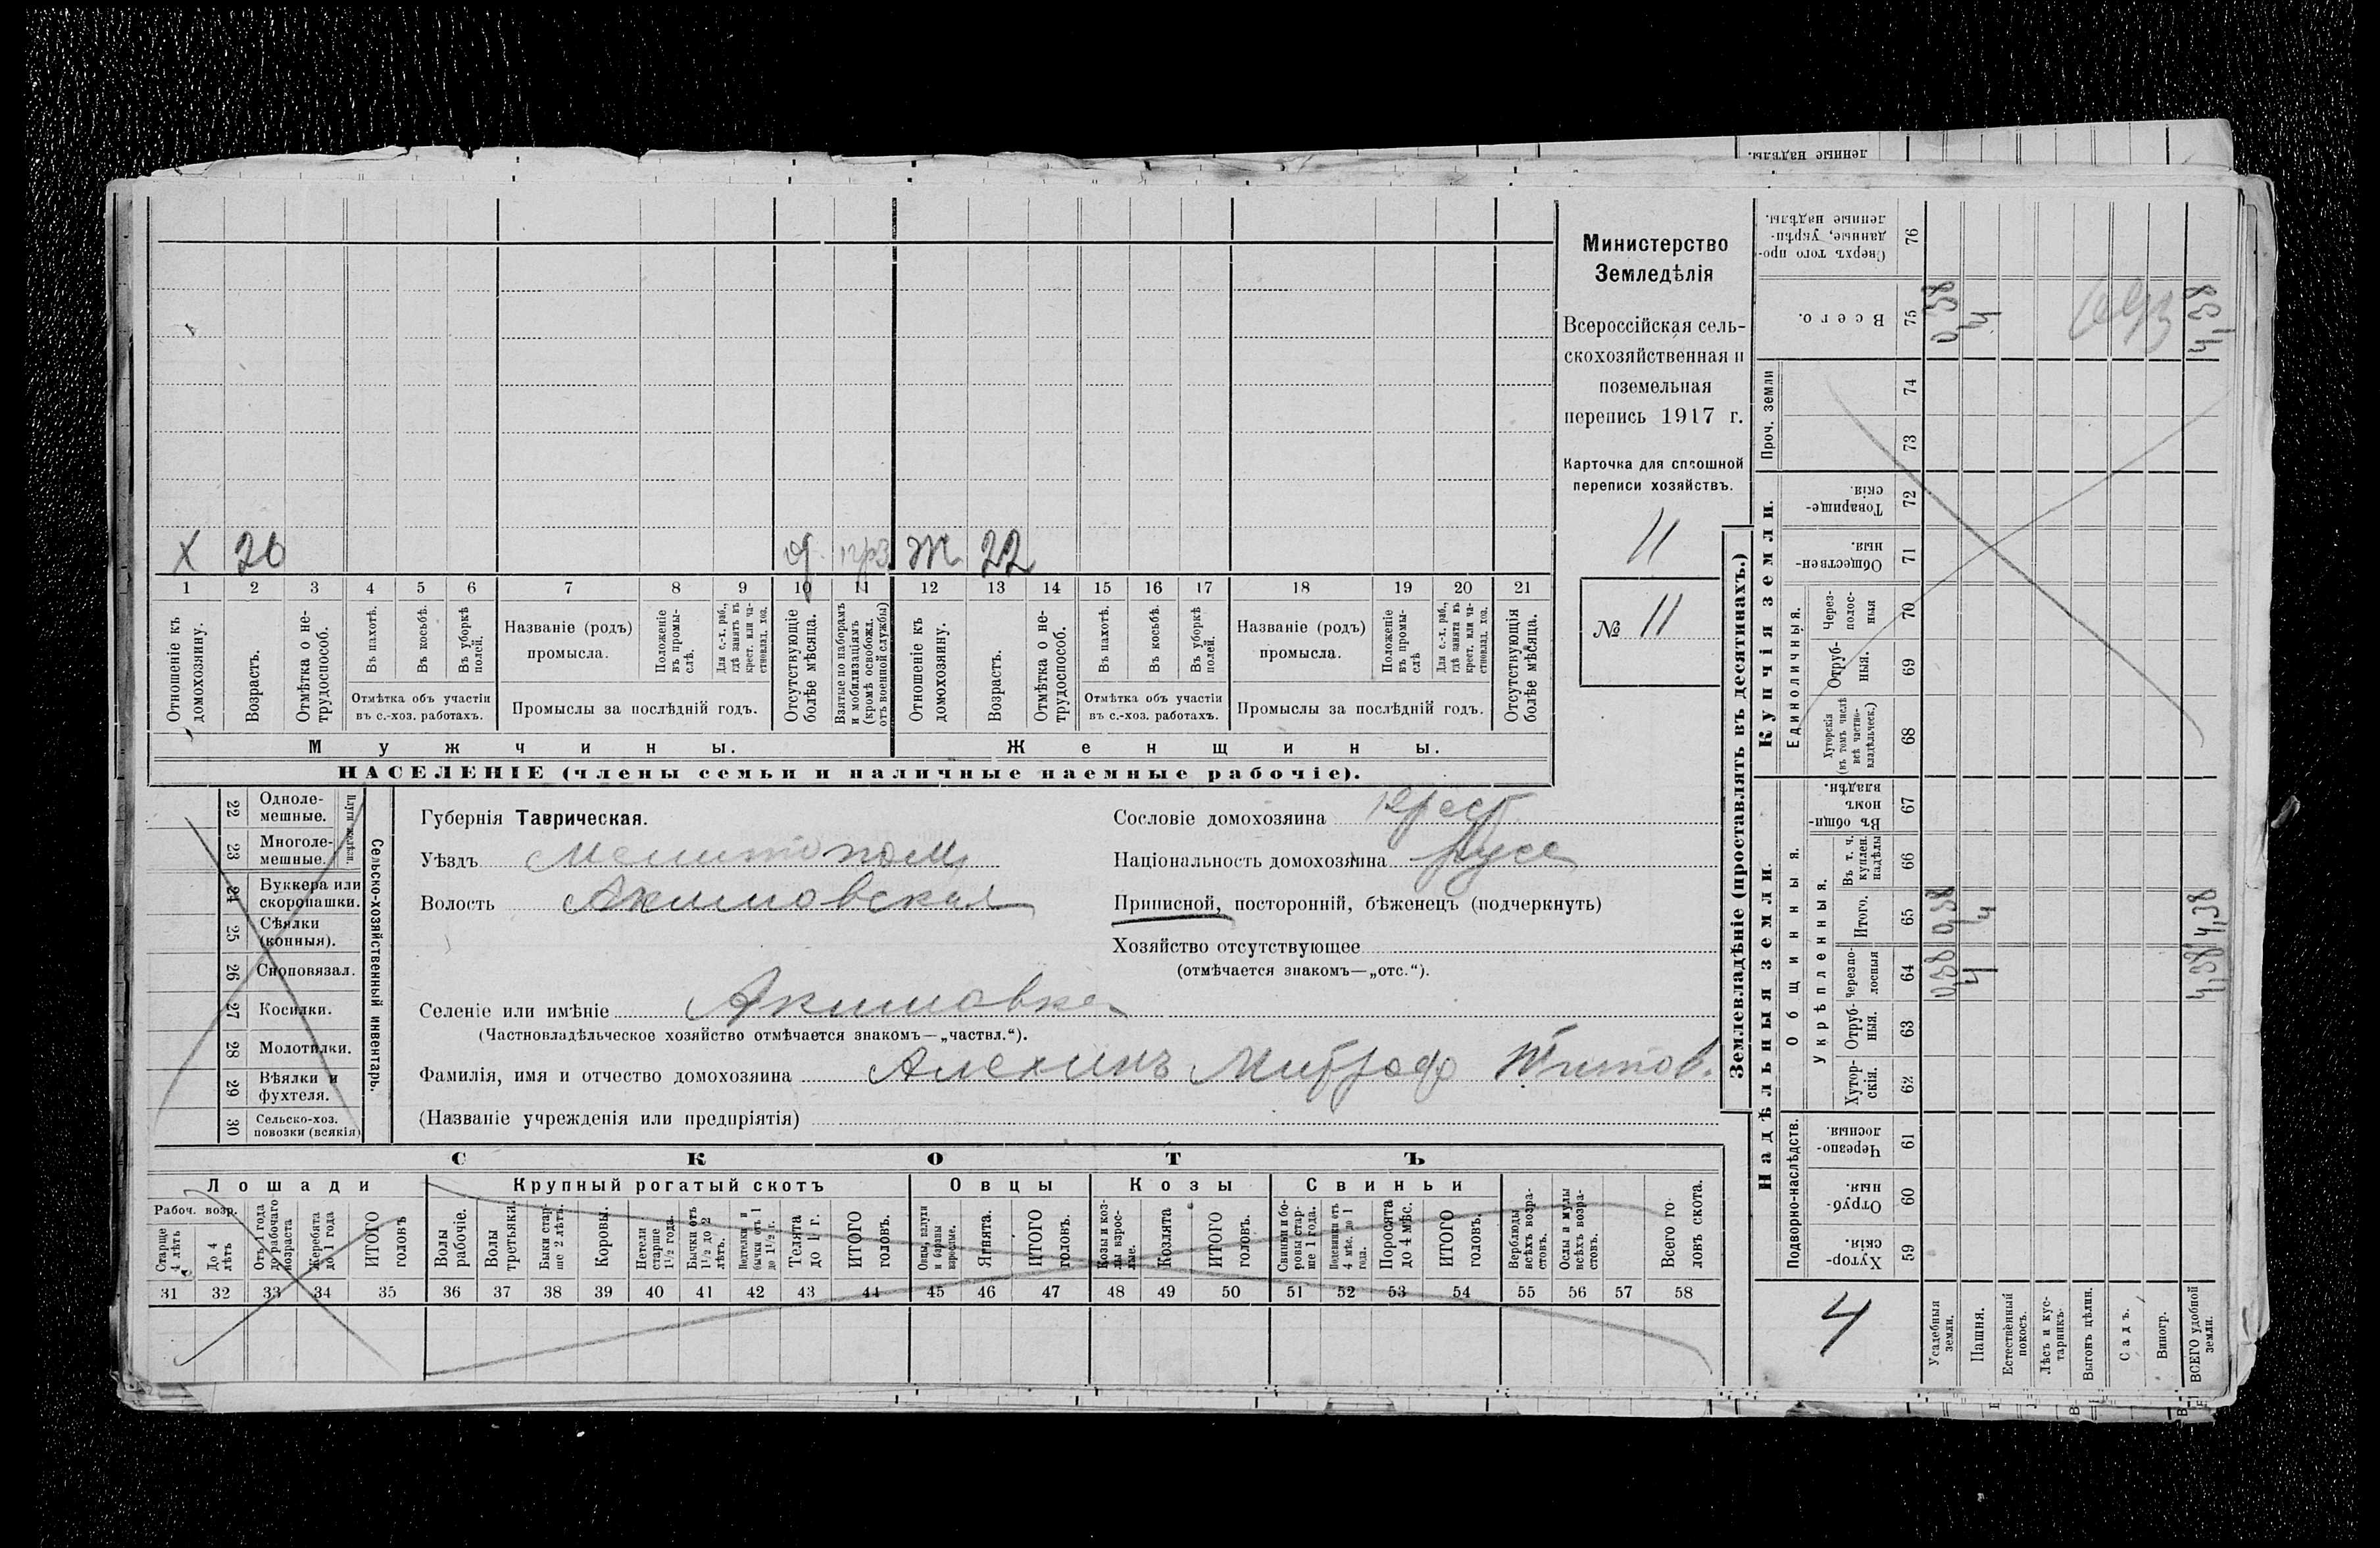 ленные надѣлы.
Министерство
Земледѣлія
Всероссійская сель-
скохозяйственная и
поземельная
перепись 1917 г.
Карточка для сплошной
переписи хозяйствъ.
11
№ 11
Х 20 Ж 22
1 2 3 4 5 6 7 8 9 10 11 12 13 14 15 16 17 18 19 20 21
Отношеніе къ домохозяину.
Возрастъ.
Отмѣтка о не-трудоспособ.
Въ пахотѣ.
Въ косьбѣ.
Въ уборкѣ полей.
Отмѣтка объ участіи
въ с.-хоз. работахъ.
Названіе (родъ)
промысла.
Положеніе въ промы-слѣ.
Для с.-х. раб., гдѣ занятъ въ крест. или ча-стновлад. хоз.
Промыслы за послѣдній годъ.
Отсутствующіе болѣе мѣсяца.
Взятые по наборамъ и мобилизаціямъ (кромѣ освобожд. отъ военной службы)
Отношеніе къ домохозяину.
Возрастъ.
Отмѣтка о не-трудоспособ.
Въ пахотѣ.
Въ косьбѣ.
Въ уборкѣ полей.
Отмѣтка объ участіи
въ с.-хоз. работахъ.
Названіе (родъ)
промысла.
Положеніе въ промы-слѣ
Для с.-х. раб., гдѣ занята въ крест. или ча-стновлад. хоз.
Промыслы за послѣдній годъ.
Отсутствующія болѣе мѣсяца.
Мужчины.
Женщины.
НАСЕЛЕНІЕ (члены семьи и наличные наемные рабочіе).
22 Одноле-мешные.
23 Многоле-мешные.
Плуги желѣзн.
24 Буккера или скоропашки.
25 Сѣялки (конныя).
26 Сноповязал.
27 Косилки.
28 Молотилки.
29 Вѣялки и фухтеля.
30 Сельско-хоз. повозки (всякія)
Сельско-хозяйственный инвентарь.
Губернія Таврическая.
Уѣздъ Мелитопол
Волость Акимовская
Сословіе домохозяина Крест.
Національность домохозяина Русс
Приписной, посторонній, бѣженецъ (подчеркнуть)
Хозяйство отсутствующее
(отмѣчается знакомъ—„отс.“).
Селеніе или имѣніе Акимовка
(Частновладѣльческое хозяйство отмѣчается знакомъ—„частвл.“).
Фамилія, имя и отчество домохозяина Алехинъ Митроф Титов.
(Названіе учрежденія или предпріятія)
СКОТЪ
Лошади
Крупный рогатый скотъ
Овцы
Козы
Свиньи
Рабоч. возр.
Старше 4 лѣтъ
До 4 лѣтъ
Отъ 1 года до рабочаго возраста
Жеребята до 1 года
ИТОГО головъ
Волы рабочіе.
Волы третьяки.
Быки стар-ше 2 лѣтъ.
Коровы.
Нетели старше 1½ года.
Бычки отъ 1½ до 2 лѣтъ.
Подтелки и бычки отъ 1 до 1½ г.
Телята до 1 г.
ИТОГО головъ.
Овцы, валухи и бараны взрослые.
Ягнята.
ИТОГО головъ.
Козы и коз-лы взрос-лые.
Козлята
ИТОГО головъ.
Свиньи и бо-ровы стар-ше 1 года.
Подсвинки отъ 4 мѣс. до 1 года.
Поросята до 4 мѣс.
ИТОГО головъ.
Верблюды всѣхъ возра-стовъ.
Ослы и мулы всѣхъ возра-стовъ.
Всего го-ловъ скота.
31 32 33 34 35 36 37 38 39 40 41 42 43 44 45 46 47 48 49 50 51 52 53 54 55 56 57 58
Землевладѣніе (проставлять въ десятинахъ.)
Надѣльныя земли.
Купчія земли.
Проч. земли
Подворно-наслѣдств.
Общинныя.
Укрѣпленныя.
Единоличныя.
Хутор-скія. 59
Отруб-ныя. 60
Черезпо-лосныя. 61
Хутор-скія. 62
Отруб-ныя. 63
Черезпо-лосныя 64
Итого. 65
Въ т. ч. куплен. надѣлы 66
Въ общин-номъ владѣн. 67
Хуторскія (въ томъ числѣ всѣ частно-владѣльческ.) 68
Отруб-ныя. 69
Через-полос-ныя 70
Обществен-ныя. 71
Товарище-скія. 72
73
74
Всего. 75
Сверхъ того про-данные, укрѣп-ленные надѣлы. 76
4
Усадебныя земли. 0,38 0,38 0,38
Пашня. 4 4 4
Естественный покосъ.
Лѣсъ и кус-тарникъ.
Выгонъ цѣлин.
Садъ.
Виногр.
ВСЕГО удобной земли. 4,38 4,38 4,38